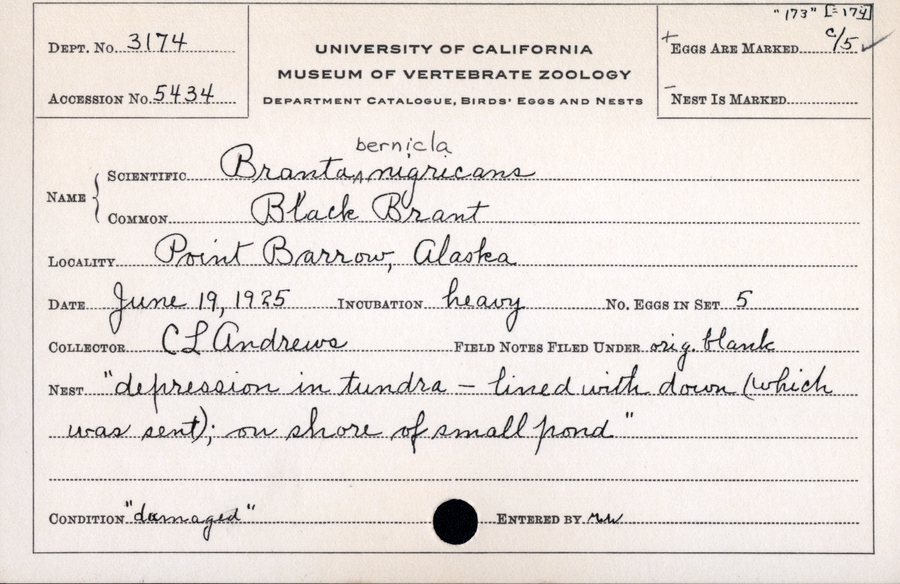 "173" [=174]
DEPT. NO. 3174
UNIVERSITY OF CALIFORNIA
MUSEUM OF VERTEBRATE ZOOLOGY
DEPARTMENT CATALOGUE, BIRDS' EGGS AND NESTS
+ EGGS ARE MARKED c/5 ✓
ACCESSION NO. 5434
– NEST IS MARKED
bernicla
NAME { SCIENTIFIC Branta ^ nigricans
COMMON Black Brant
LOCALITY Point Barrow, Alaska
DATE June 19, 1925 INCUBATION heavy NO. EGGS IN SET 5
COLLECTOR C L Andrews FIELD NOTES FILED UNDER orig. blank
NEST "depression in tundra – lined with down (which
was sent); on shore of small pond"
CONDITION "damaged" ENTERED BY